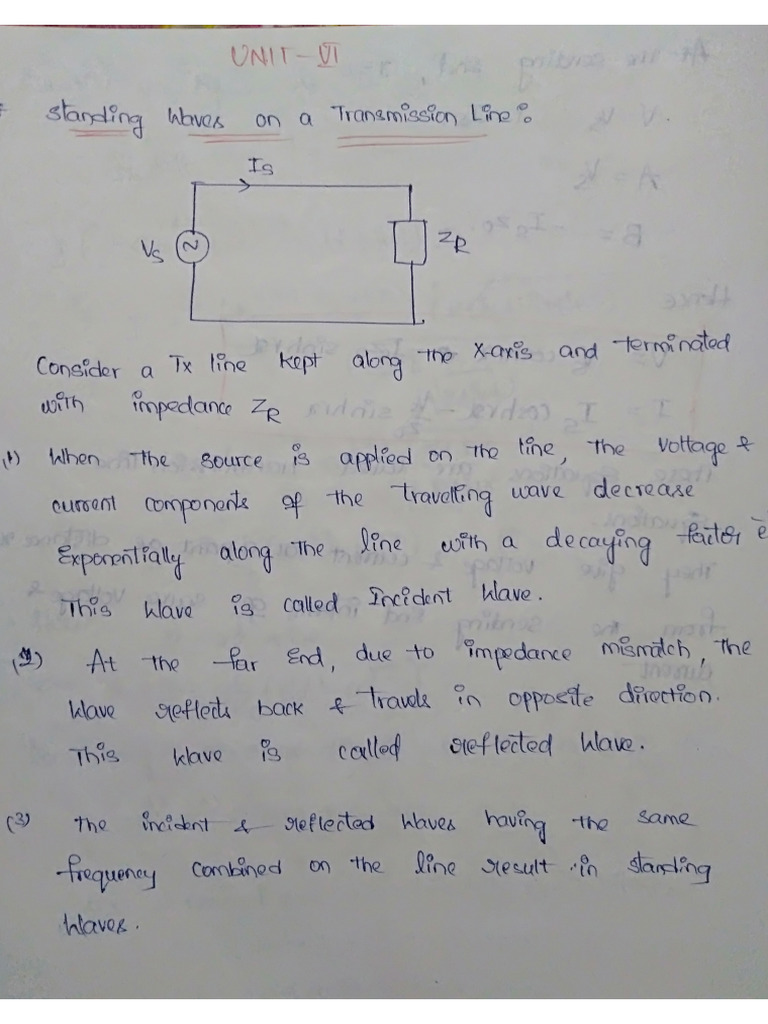 UNIT-VI
Standing Waves on a Transmission Line:
IS
VS
ZR
Consider a Tx line kept along the X-axis and terminated
with impedance ZR
(1) When the source is applied on the line, the voltage &
current components of the travelling wave decrease
Exponentially along the line with a decaying factor e
This Wave is called Incident Wave.
(2) At the far End, due to impedance mismatch, the
Wave reflects back & travels in opposite direction.
This Wave is called reflected Wave.
(3) The incident & reflected Waves having the same
frequency combined on the line result in standing
Waves.